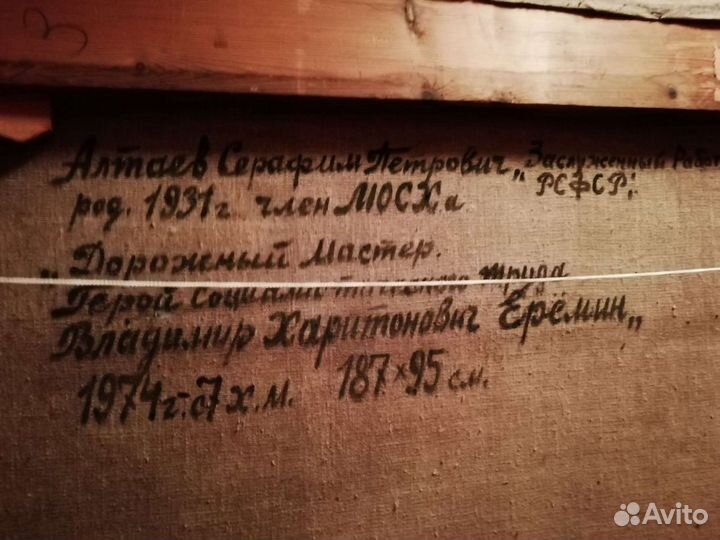 3
Алтаев Серафим Петрович „Заслуженный
РСФСР“
род. 1931 г член МОСХа
„Дорожный Мастер.
Герой социалистического труда
Владимир Харитонович Ерёмин„
1974 г. х.м. 187×95 см.
Avito